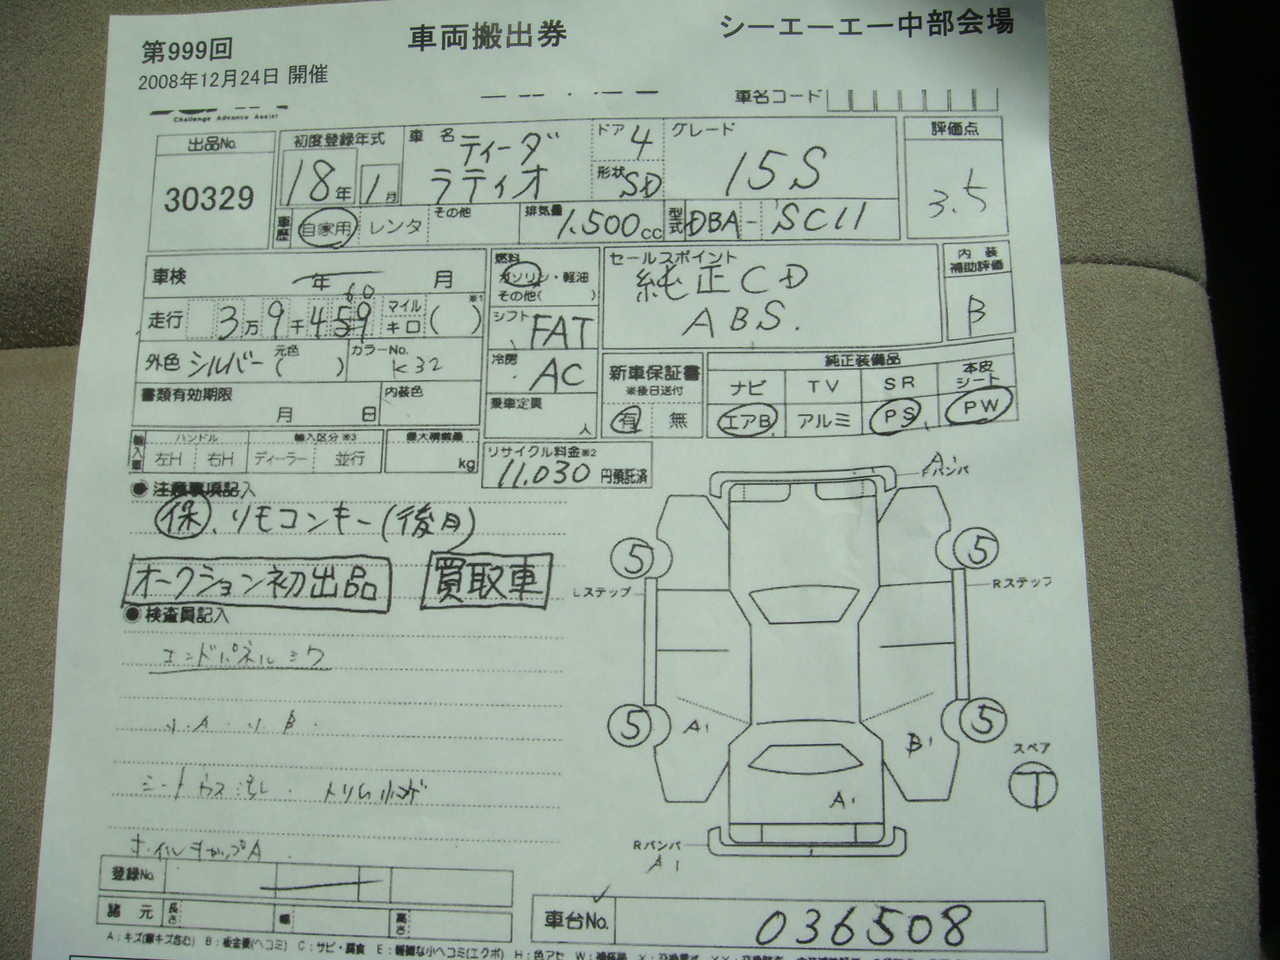 第999回 車両搬出券 シーエーエー中部会場
2008年12月24日 開催
車名コード
Challenge Advance Assist
出品No. 初度登録年式 車名 ティーダ ドア 4 グレード 評価点
30329 18年 1月 ラティオ 形状 SD 15S 3.5
車歴 自家用 レンタ その他 排気量 1.500cc 型式 DBA-SC11
車検 年 月 燃料 ガソリン・軽油 セールスポイント 内装補助評価
60 その他( ) 純正CD
走行 3万9千459 マイル キロ ( ) ※1 シフト FAT ABS. B
外色 シルバー 元色( ) カラーNo. K32 冷房 AC 新車保証書 純正装備品
※後日送付 ナビ TV SR 本皮シート
書類有効期限 月 日 内装色 乗車定員 人 有 無 エアB アルミ PS PW
輸入車 ハンドル 輸入区分※3 最大積載量 リサイクル料金※2
左H 右H ディーラー 並行 kg 11.030 円預託済
●注意事項記入 A1 Fバンパ
保.リモコンキー(後日)
5 5
オークション初出品 買取車 Lステップ Rステップ
●検査員記入
エンドパネルミワ
小A 小B.
5 A1 B1 5
スペア
シートウス汚レ. トリム小キズ A1 T
ホイルキャップA Rバンパ
A1
登録No.
諸元 長さ 幅 高さ 車台No. 036508